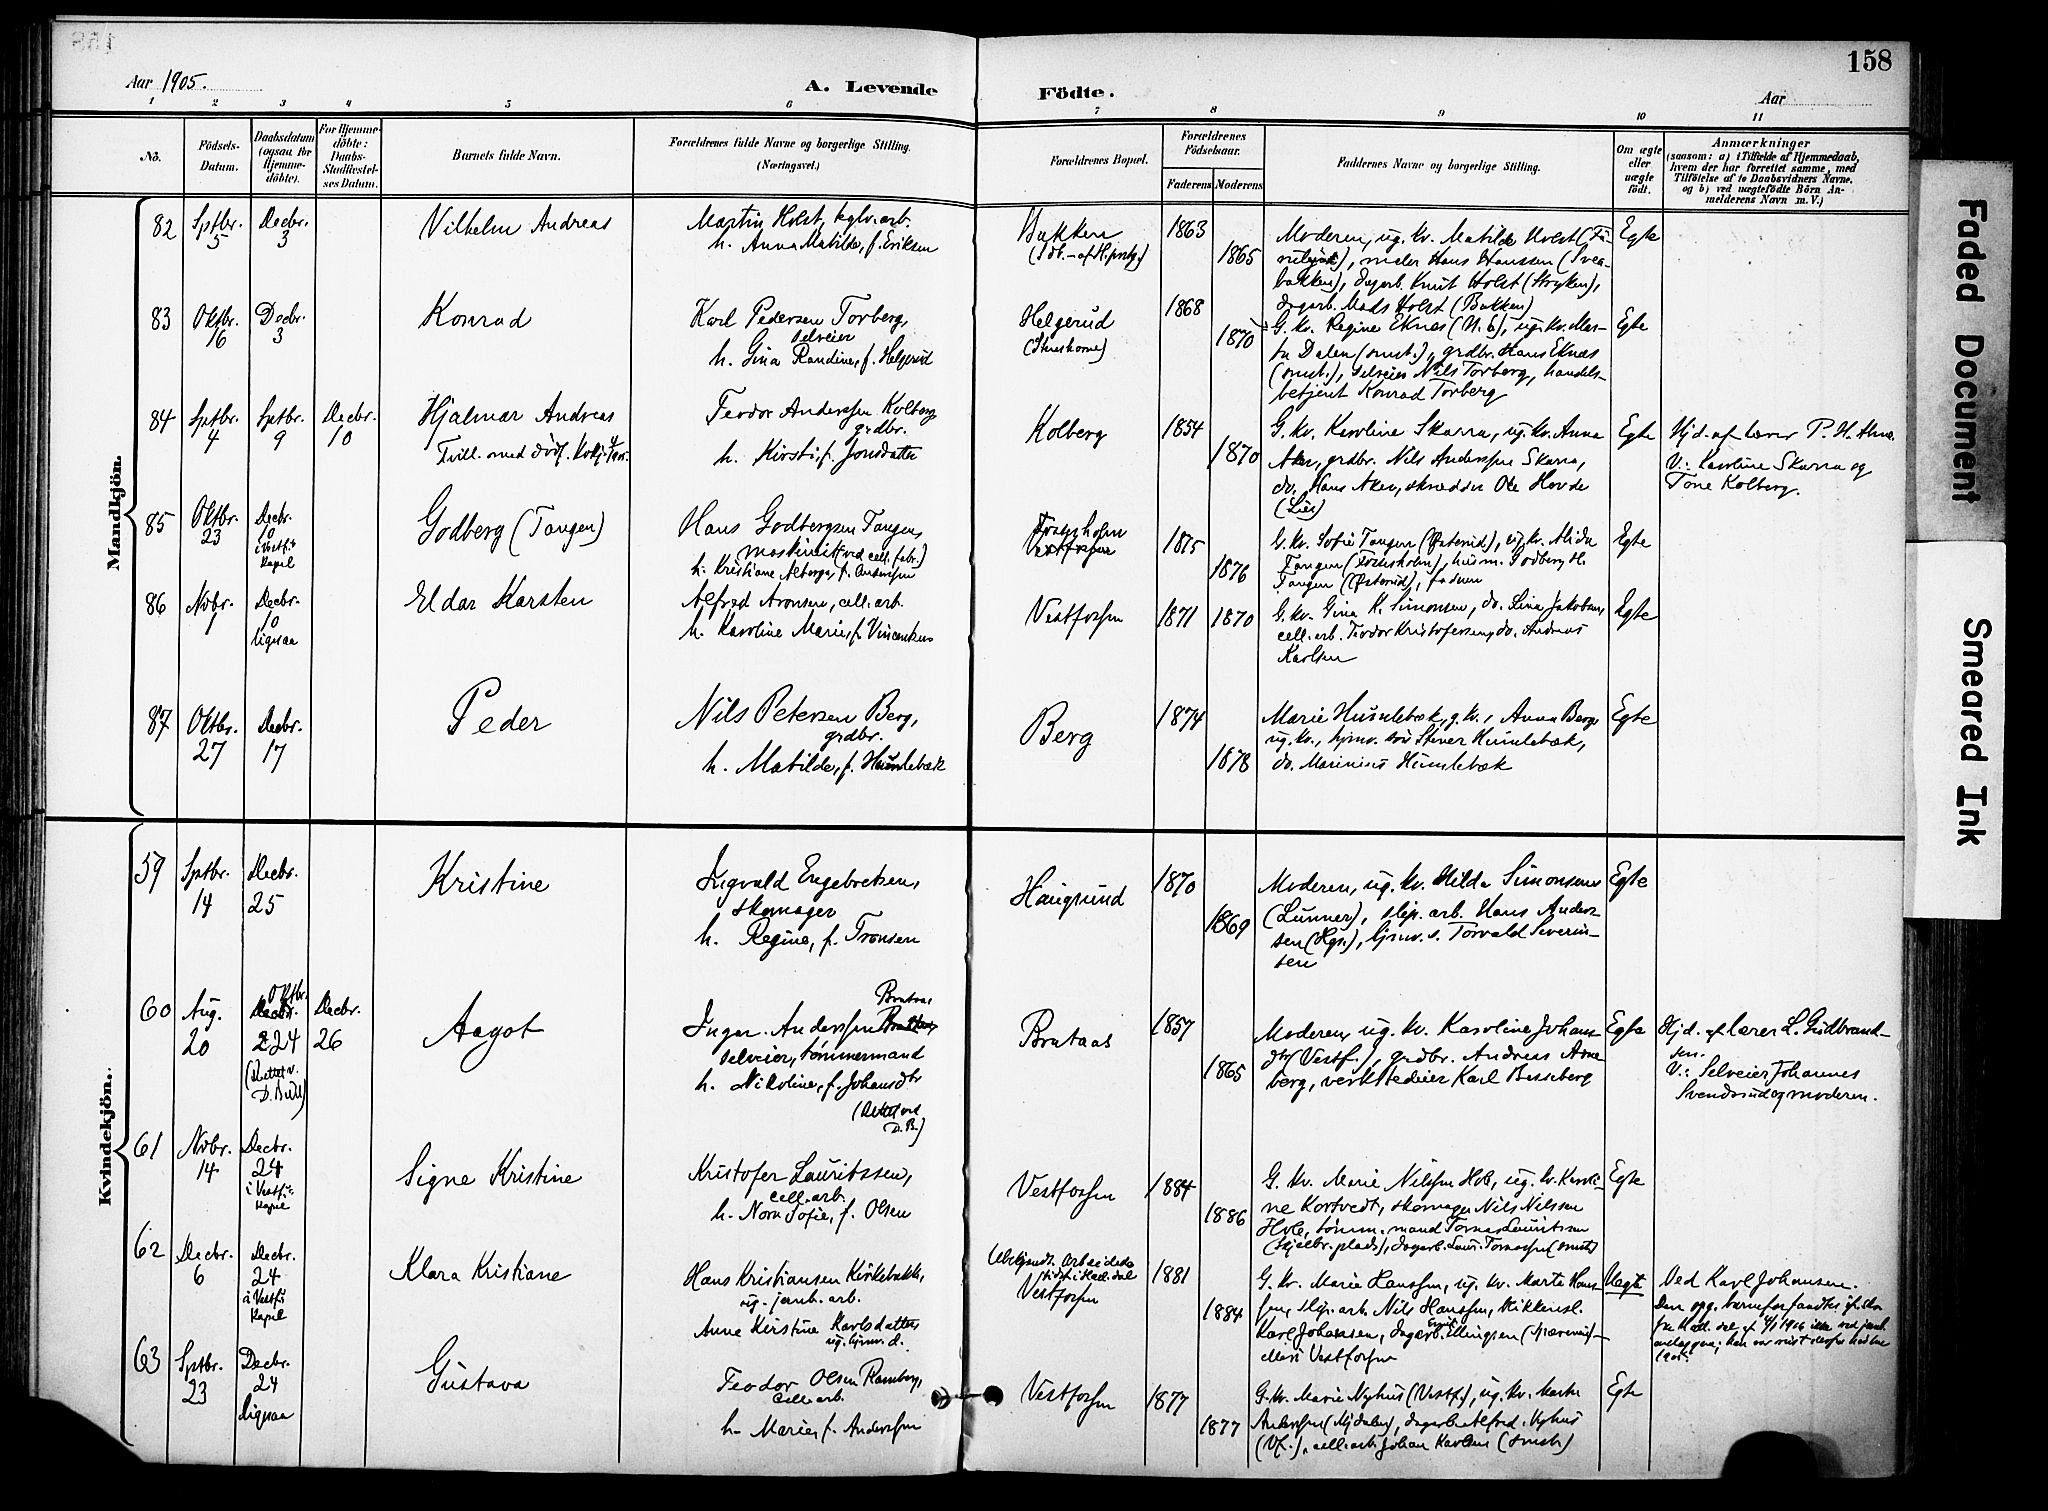 158
Aar 1905.
A. Levende Födte.
Aar
1 2 3 4 5 6 7 8 9 10 11
No.
Födsels-
Datum.
Daabsdatum
(ogsaa for
Hjemme-
döbte).
For Hjemme-
döbte:
Daabs-
Stadfæstel-
ses Datum.
Barnets fulde Navn.
Forældrenes fulde Navne og borgerlige Stilling.
(Næringsvei.)
Forældrenes Bopæl.
Forældrenes
Födselsaar.
Faderens
Moderens
Faddernes Navne og borgerlige Stilling.
Om ægte
eller
uægte
födt.
Anmærkninger
(saasom: a) i Tilfælde af Hjemmedaab,
hvem der har forrettet samme, med
Tilföielse af to Daabsvidners Navne,
og b) ved uægtefödte Börn An-
melderens Navn m. V.)
Mandkjön.
82
Sptbr.
5
Decbr.
3
Vilhelm Andreas
Martin Holst, fglv. arb.
h. Anna Matilde, f. Eriksen
Bakken
1863
1865
Moderen, ug. kv. Matilde Holst
Hans Hanssen (Svea-
bakken), dagarb. Knut Holst (Stryken),
dagarb. Mads Holst (Bakken)
Egte
83
Oktbr.
16
Decbr.
3
Konrad
Karl Pedersen Torberg,
selveier
h. Gina Randine, f. Helgerud
Helgerud
1868
1870
G. kv. Regine Eknes (N. E), ug. kv. Mar-
ta Dalen (smst.), grdbr. Hans Eknæs
(smst.), selveier Nils Torberg, handels-
betjent Konrad Torberg
Egte
84
Sptbr.
4
Sptbr.
9
Decbr.
10
Hjalmar Andreas
Tvill. med dødf.
Teodor Anderssen Kolberg
grdbr.
h. Kirsti, f. Jonsdatter
Kolberg
1854
1870
G. kv. Karoline Skarra, ug. kv. Anna
Aker, grdbr. Nils Anderssen Skarra,
do. Hans Aker, skrædder Ole Hovde
(Lier)
Egte
Hjd. af lærer P. H.
V.: Karoline Skarra og
Tone Kolberg.
85
Oktbr.
23
Decbr.
10
i Vestf.
kapel
Godberg (Tangen)
Hans Godbergsen Tangen,
maskinist (ved cell. fabr.)
h. Kristiane Alberga, f. Anderssen
Vestfossen
1875
1876
G. kv. Sofie Tangen (Østerud), ug. kv. Alida
Tangen (Fosesholm), husm. Godberg H.
Tangen (Østerud), faderen
Egte
86
Novbr.
1
Decbr.
10
ligesaa
Eldar Karsten
Alfred Aronsen, cell. arb.
h. Karoline Marie, f. Vincentsen
Vestfossen
1871
1870
G. kv. Gina K. Simonsen, do. Lina Jakobsen,
cell. arb. Teodor Kristofersen, do. Andreas
Karlsen
Egte
87
Oktbr.
27
Decbr.
17
Peder
Nils Petersen Berg,
grdbr.
h. Matilde, f. Humlebæk
Berg
1874
1878
Marie Humlebæk, g. kv., Anna Berg,
ug. kv., hjmv. søn Stener Humlebæk,
do. Marinius Humlebæk
Egte
Kvindekjön.
59
Sptbr.
14
Decbr.
25
Kristine
Ingvald Engebretsen,
skomager
h. Regine, f. Tronsen
Haugsund
1870
1869
Moderen, ug. kv. Hilda Simonsen
(Lunner), slip. arb. Hans Ander-
sen (Hgs.), hjmv. s. Torvald Severin-
sen
Egte
60
Aug.
20
Oktbr.
Decbr.
24
(Rettet v.
D. Bull)
Decbr.
26
Aagot
Brutaas
Ingar Anderssen
selveier, tømmermand
h. Nikoline, f. Johansdtr
(Rettet ved
D. B.)
Brutaas
1857
1865
Moderen, ug. kv. Karoline Johans-
dtr (Vestf.), grdbr. Andreas Arne-
berg, verkstedeier Karl Besseberg
Egte
Hjd. af lærer L. Gudbrand-
sen.
V.: Selveier Johannes
Svendsrud og moderen.
61
Novbr.
14
Decbr.
24
i Vestf.
kapel
Signe Kristine
Kristofer Lauritssen,
cell. arb.
h. Nora Sofie, f. Olsen
Vestfossen
1884
1886
G. kv. Marie Nilssen Hob, ug. kv. Karoli-
ne Kortvedt, skomager Nils Nilssen
Hob, tømm. mand Tomas Lauritssen
dagarb. Laur. Tomassen (smst)
Egte
62
Decbr.
6
Decbr.
24
i Vestf.
kapel
Klara Kristiane
Hans Kristiansen Kirkebakke,
ug. jernb. arb.
Anne Kirstine Karlsdatter
ug. hjmv. d.
Ubekjendt. Arbeidede
sidst i Hall.dal
Vestfossen
1881
1884
G. kv. Marie Hanssen, ug. kv. Marte Hans-
sen, slip. arb. Nils Hanssen, Mikkel
Karl Johansen, dagarb. Ellingsen
Vestfossen
Uegte
Ved Karl Johansen.
Den opg. barnefar
63
Sptbr.
23
Decbr.
24
ligesaa
Gustava
Teodor Olsen Ramberg,
cell. arb.
h. Marie, f. Anderssen
Vestfossen
1877
1877
G. kv. Marie Nyhus (Vestf.), ug. kv. Marte
Anderssen (Mjdalen), dagarb. Alfred Nyhus
(Vf.), cell. arb. Johan Karlsen (smst.)
Egte
Faded Document
Smeared Ink